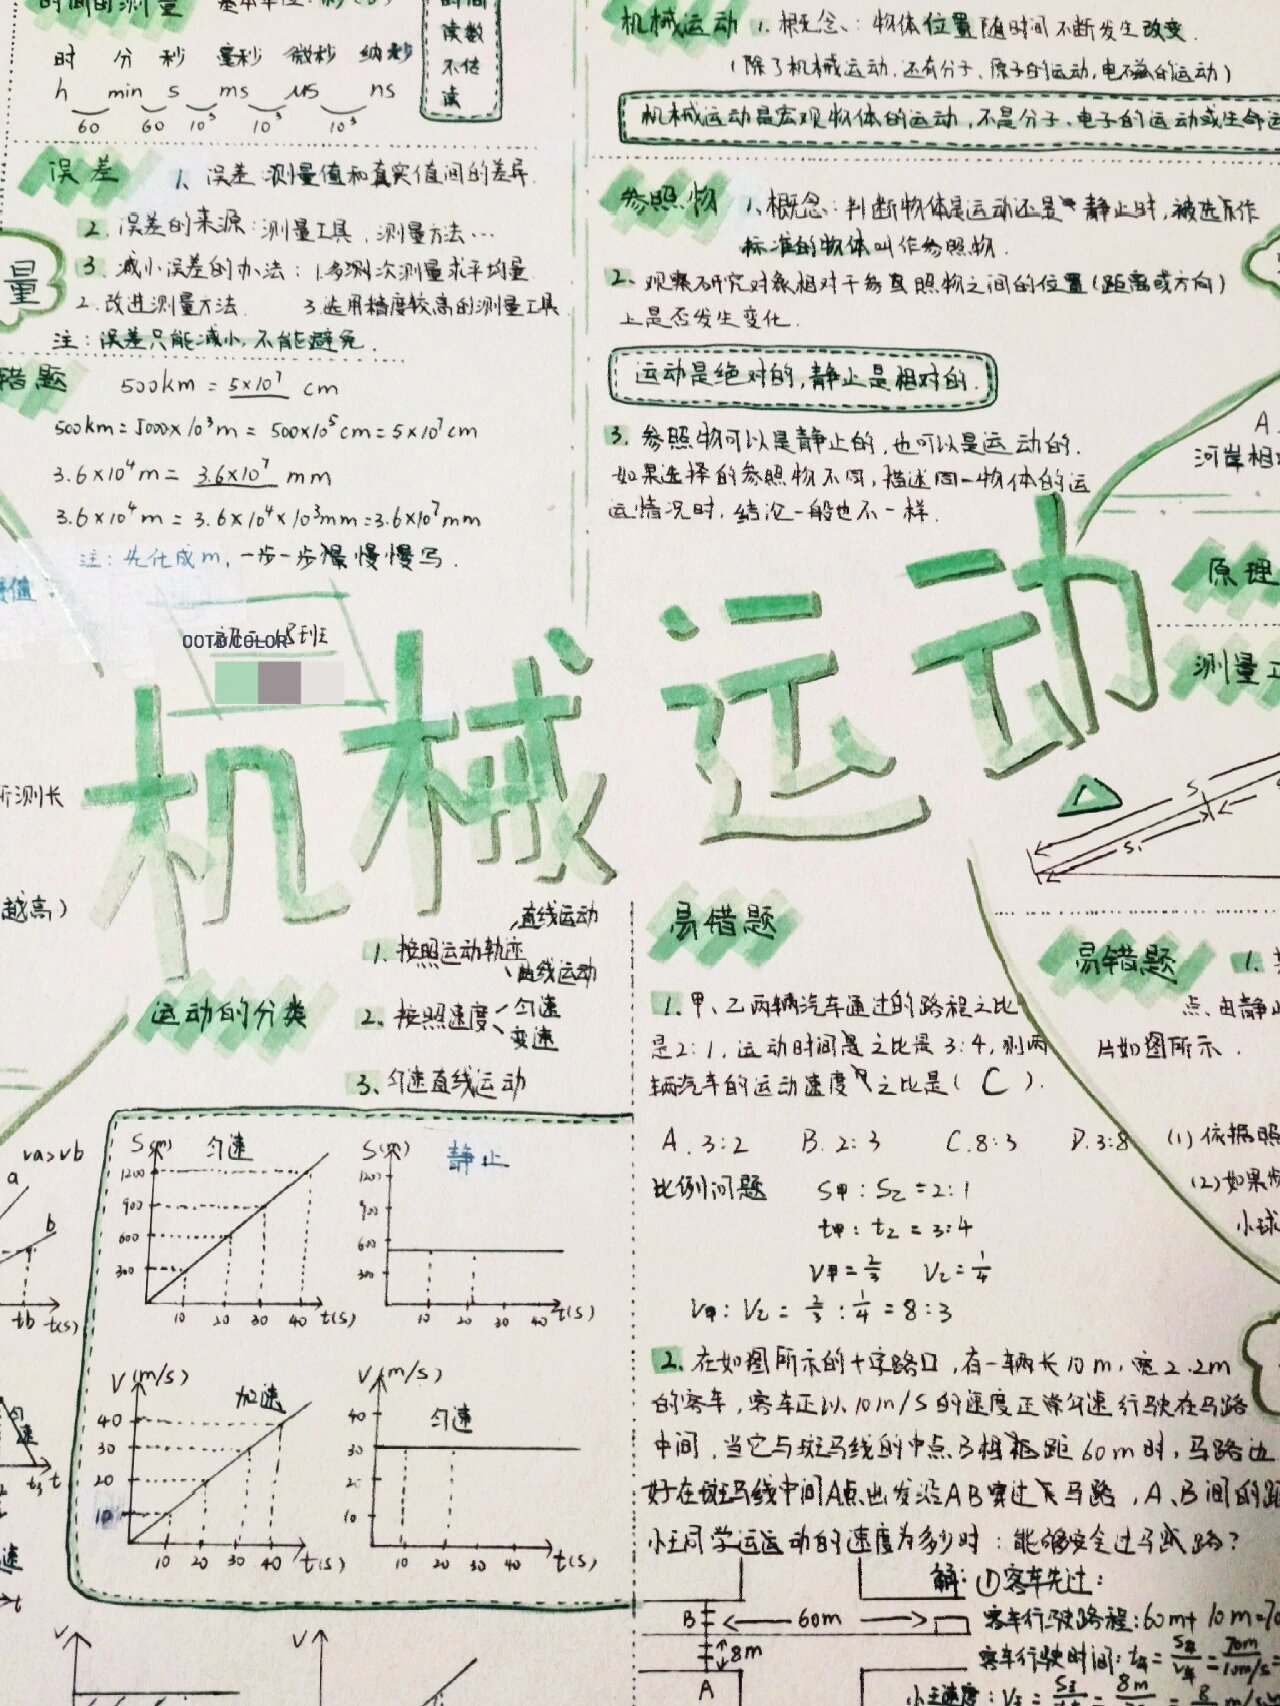 时间的测量
时 分 秒 毫秒 微秒 纳秒
h min s ms μs ns
60 60 10³ 10³ 10³
读数
不估
读
误差
1、误差:测量值和真实值间的差异.
2. 误差的来源:测量工具、测量方法…
3. 减小误差的办法:1.多测次测量求平均量
2.改进测量方法. 3.选用精度较高的测量工具
注:误差只能减小,不能避免.
量
错题
500km = 5×10⁷ cm
500km = 5000×10³m = 500×10⁵cm = 5×10⁷cm
3.6×10⁴m = 3.6×10⁷ mm
3.6×10⁴m = 3.6×10⁴×10³mm = 3.6×10⁷mm
注:先化成m,一步一步慢慢写.
OOTD/COLOR
机械运动
1. 概念:物体位置随时间不断发生改变.
(除了机械运动,还有分子、原子的运动,电磁的运动)
机械运动是宏观物体的运动,不是分子、电子的运动或生命运
参照物
1、概念:判断物体是运动还是静止时,被选作
标准的物体叫作参照物.
2. 观察研究对象相对于参照物之间的位置(距离或方向)
上是否发生变化.
运动是绝对的,静止是相对的.
3. 参照物可以是静止的,也可以是运动的.
如果选择的参照物不同,描述同一物体的运
运情况时,结论一般也不一样.
A.
河岸相
原理
测量工
机械运动
所测长
越高)
运动的分类
1. 按照运动轨迹
直线运动
曲线运动
2. 按照速度
匀速
变速
3. 匀速直线运动
va>vb
a
b
tb t(s)
S(m) 匀速
1200
900
600
300
10 20 30 40 t(s)
S(m) 静止
1200
900
600
300
10 20 30 40 t(s)
V(m/s) 加速
40
30
20
10
10 20 30 40 t(s)
V(m/s) 匀速
40
30
20
10
10 20 30 40 t(s)
匀速
V
V
易错题
1. 甲、乙两辆汽车通过的路程之比
是2:1,运动时间之比是3:4,则两
辆汽车的运动速度之比是( C ).
A. 3:2 B. 2:3 C. 8:3 D. 3:8
比例问题 S甲:S乙 = 2:1
t甲:t乙 = 3:4
V甲 = 2/3 V乙 = 1/4
V甲:V乙 = 2/3 : 1/4 = 8:3
2. 在如图所示的十字路口,有一辆长10m,宽2.2m
的客车,客车正以10m/s的速度正常匀速行驶在马路
中间,当它与斑马线的中点B相距60m时,马路边
好在斑马线中间A点出发沿AB穿过马路,A、B间的距
小王同学运运动的速度为多少时:能够安全过马路?
解:①客车先过:
客车行驶路程:60m+10m=70
客车行驶时间:t车 = S车/V车 = 70m/10m/s =
B 60m
8m
A
S
S₁
易错题
1.
点,由静止
片如图所示.
(1)依据照
(2)如果
小球